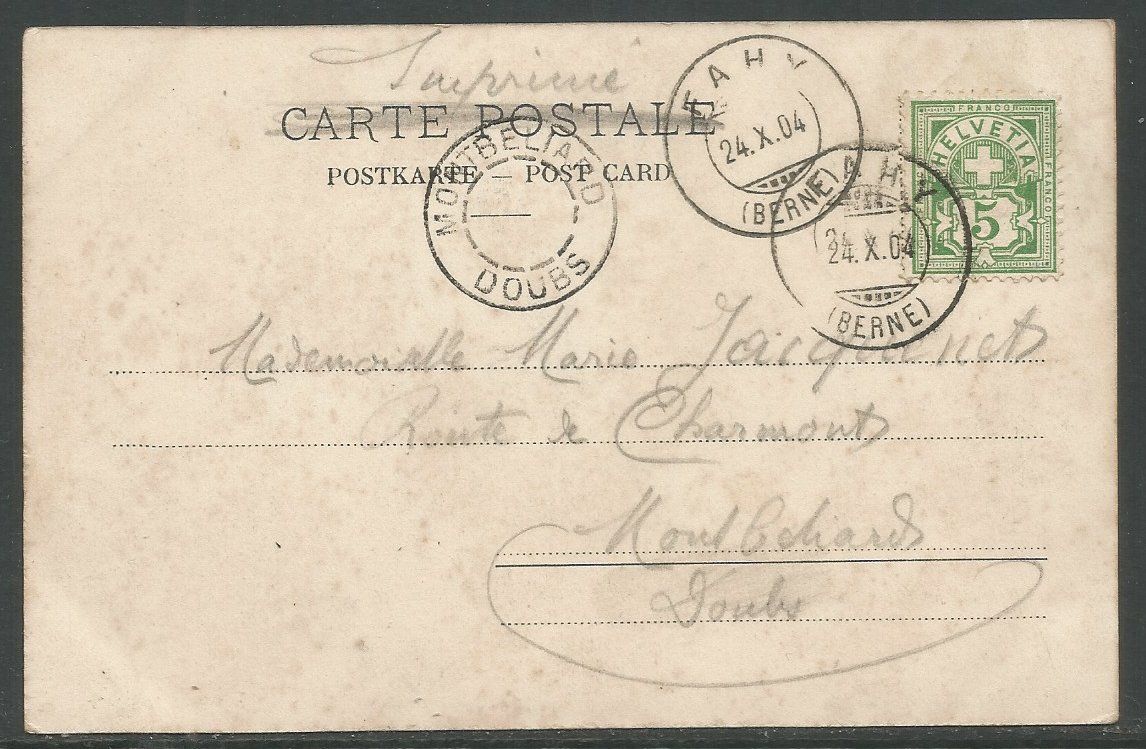 Imprimé
CARTE POSTALE
POSTKARTE — POST CARD
FAHY
24.X.04
(BERNE)
FRANCO
HELVETIA
FRANCO
5
AHY
24.X.04
(BERNE)
MONTBELIARD
DOUBS
Mademoiselle Marie Jacquenet
Route de Charmont
Montbéliard
Doubs